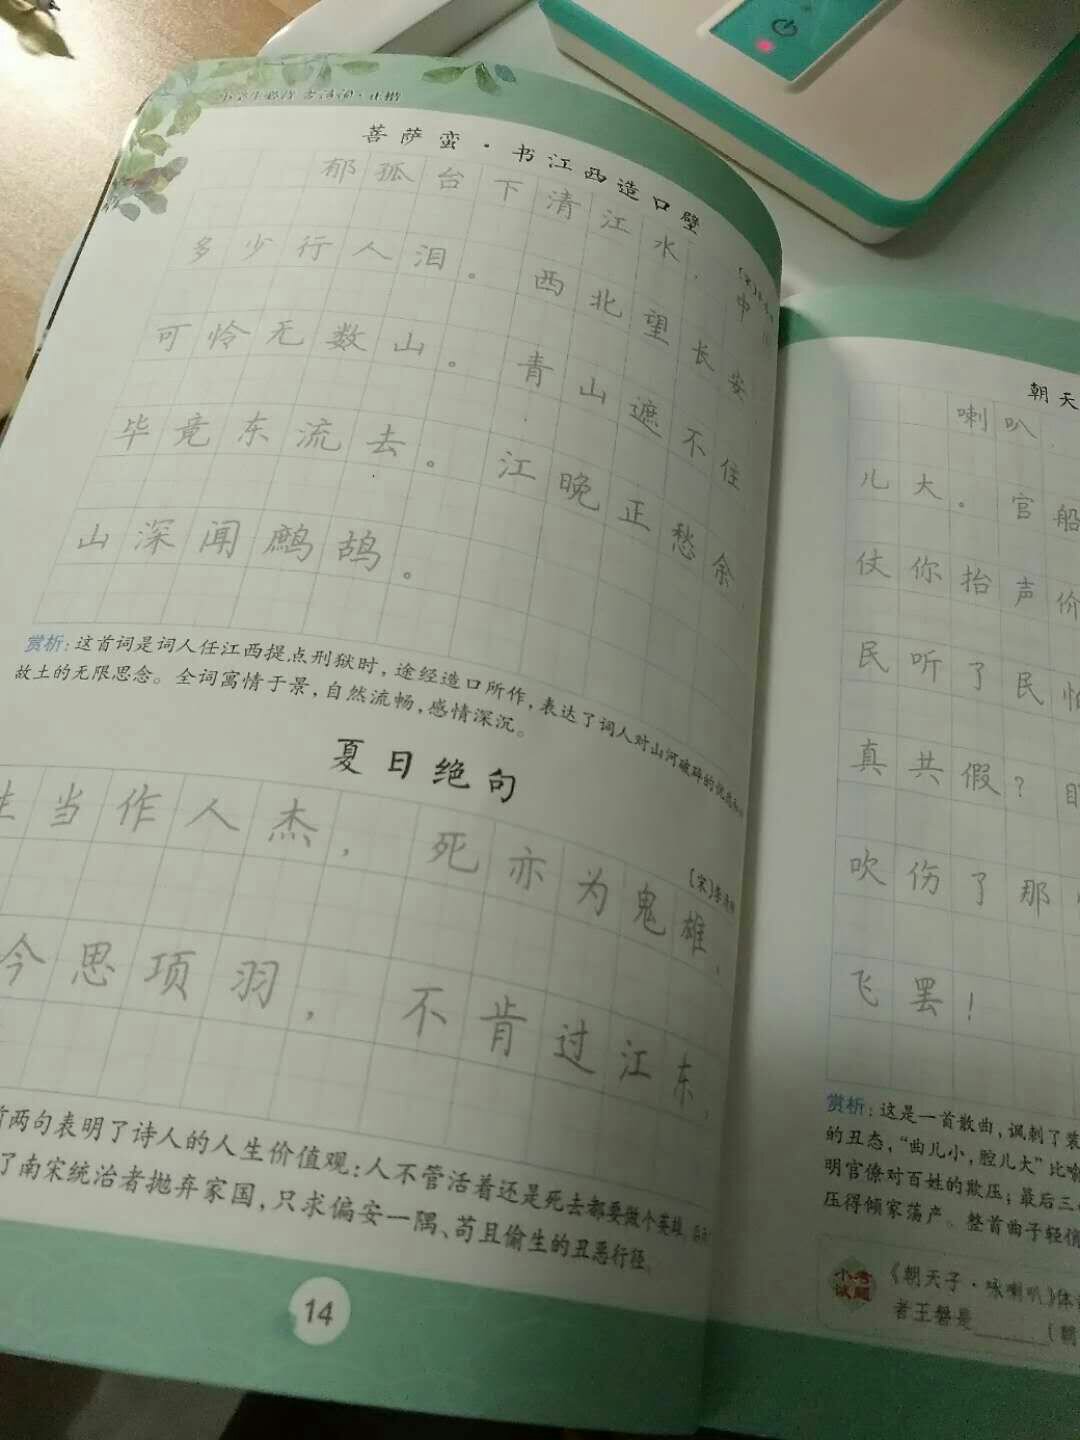 小学生必背古诗词·正楷
菩萨蛮·书江西造口壁
[宋]
郁孤台下清江水，中
多少行人泪。西北望长安
可怜无数山。青山遮不住
毕竟东流去。江晚正愁余
山深闻鹧鸪。
赏析：这首词是词人任江西提点刑狱时，途经造口所作，表达了词人对山河破碎的
故土的无限思念。全词寓情于景，自然流畅，感情深沉。
夏日绝句
[宋]李清照
生当作人杰，死亦为鬼雄，
今思项羽，不肯过江东，
前两句表明了诗人的人生价值观：人不管活着还是死去都要做个英雄
了南宋统治者抛弃家国，只求偏安一隅、苟且偷生的丑恶行径。
14
朝天
喇叭
儿大。官船
仗你抬声价
民听了民怕
真共假？眼
吹伤了那
飞罢！
赏析：这是一首散曲，讽刺了
的丑态，“曲儿小，腔儿大”比喻
明官僚对百姓的欺压；最后三
压得倾家荡产。整首曲子轻俏
小考试题
《朝天子·咏喇叭》体
者王磐是______（朝